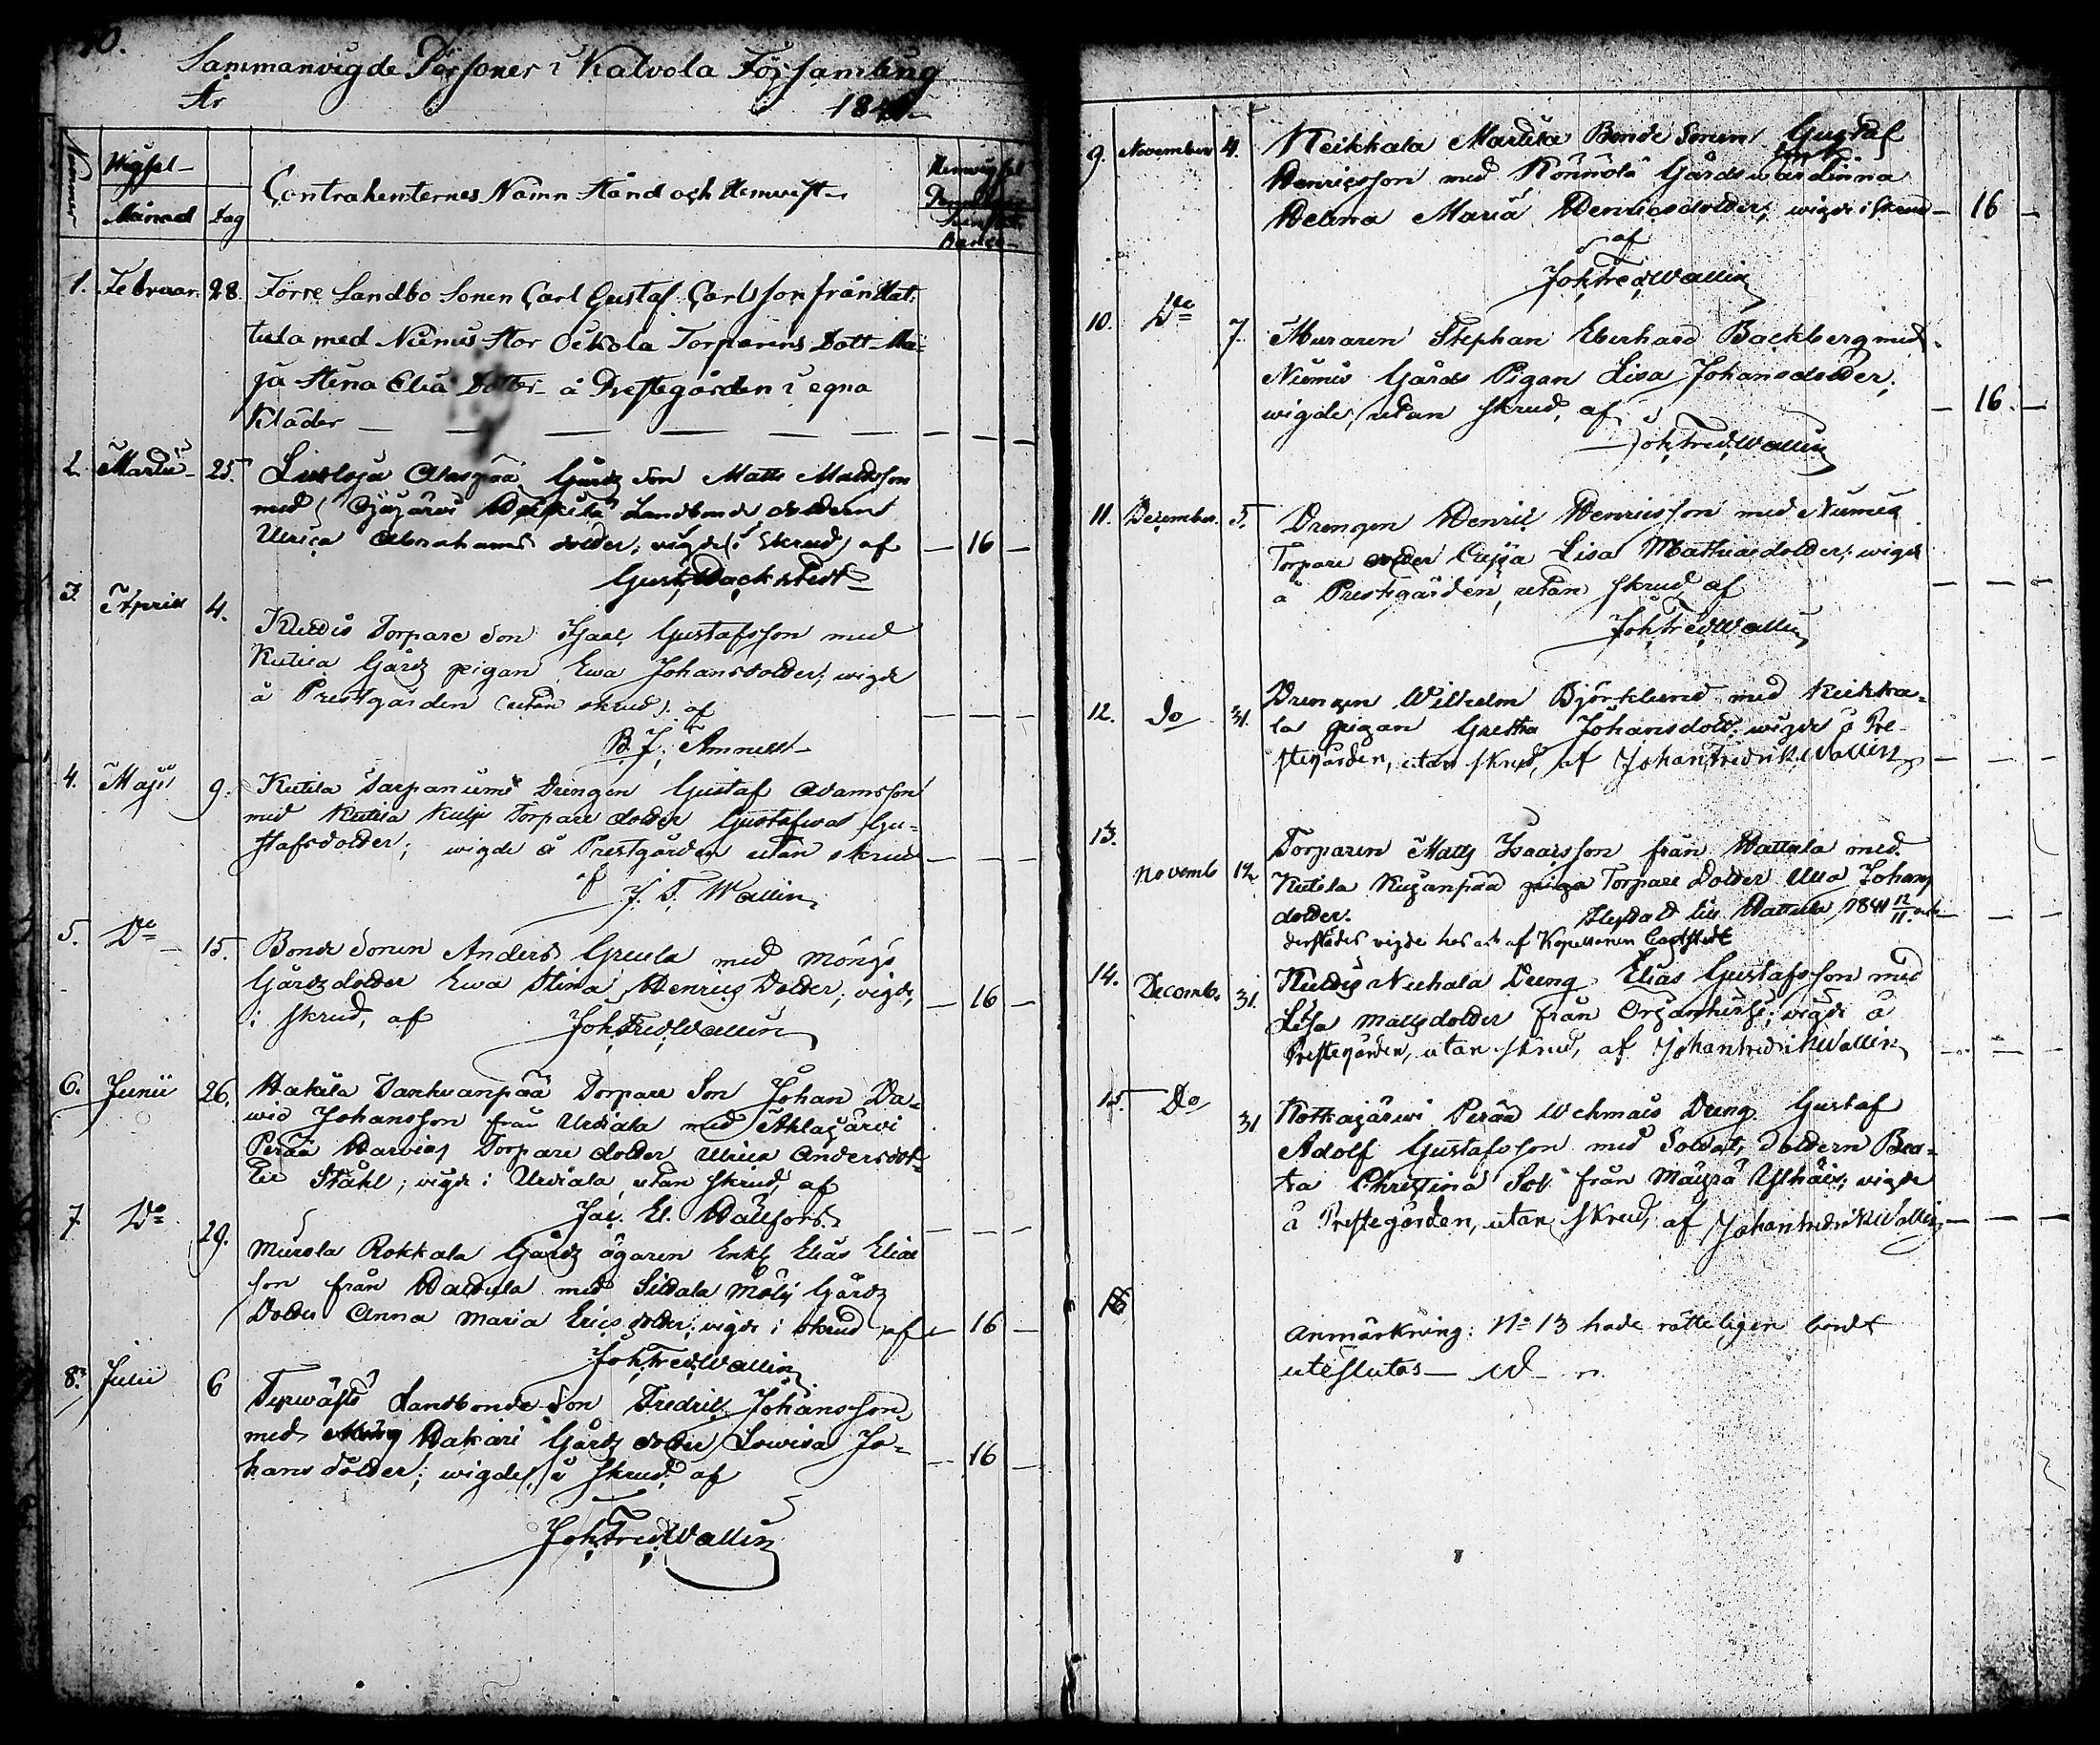 10.
Sammanvigde Personer i Kalvola Församling
År 1841
Nummer
Vigsel-
Månad Dag
Contrahenternes Namn Stånd och Hemvist
1. Februar. 28. Förre Landbo Sonen Carl Gustaf Carlsson från Hat-
tula med Niemis Stor Ockola Torparens Dott. Ma-
ja Stina Elia Dotter å Prestegården i egna
Kläder
2. Martii 25. Gårds Son Matts Mattsson
med Landbonde dottern
Ulrica Abrahams dotter; vigde (i Skrud) af — 16 —
Gust. Backstedt
3. Aprill 4. Torpare Son Isaac Gustafsson med
Kutila Gårds pigan Ewa Johansdotter; wigde
å Prestgården (utan skrud). af
B. J. Amnell
4. Maji 9. Kutila Sarpaniemi Drengen Gustaf Adamsson
med Kutila Torpare dotter Gustafwa Gu-
stafsdotter; wigde å Prestgården utan skrud
af J. F. Wallin
5. Do 15. Bonde Sonen Anders Greula med
Gårds dotter Ewa Stina Henrics Dotter; vigde,
i skrud, af — 16 —
Joh. Fred. Wallin
6. Junii 26. Hakala Torpare Son Johan Da-
wid Johansson från Urdiala med Ahlajärvi
Perää Torpare dotter Ulrica Andersdot-
ter Ståhl; vigde i Urdiala, utan skrud, af
Jac. El. Dällfors.
7. Do 29. Rokkala Gårds ägaren Enkl. Elias Elias
son från med Sittala Gårds
Dotter Anna Maria Erics dotter; vigde i skrud af — 16 —
Joh. Fred. Wallin
8. Julii 6 Landbonde Son Fredric Johansson
med Hakari Gårds dotter Lowisa Jo-
hans dotter; wigde, i skrud, af — 16 —
Joh. Fred. Wallin
9. November 4. Keikkala Marttila Bonde Sonen Gustaf
Henricsson med Könnölä Gårds
Helena Maria Henricsdotter; wigde i skrud — 16 —
af
Joh. Fred. Wallin
10. Do 7. Muraren Stephan Eberhard Backberg med
Niemis Gårds Pigan Lisa Johansdotter;
wigde, utan skrud, af — 16. —
Joh. Fred. Wallin
11. December. 5. Drengen Henric Henricsson med Niemis
Torpare dotter Cajsa Lisa Mathiaedotter; wigde
å Prestgården, utan skrud, af
Joh. Fred. Wallin
12. Do 31. Drengen Wilhelm Björklund med Keikka-
la pigan Gretha Johansdott. wigde å Pre-
stegården, utan skrud, af Johan Fredrik Wallin
13. Novemb 12 Torparen Matts Isaacsson från Hattula med
Kutila Torpare Dotter Ulla Johans
dotter. till Hattula 1841 12/11
derstädes vigde af Kapellanen
14. Decemb. 31. Dreng Elias Gustafsson med
Lisa Mattsdotter från ; vigde å
Prestegården, utan skrud, af Johan Fredrik Wallin
15. Do 31 Kotkajärwi Perää Wehmais Dreng Gustaf
Adolf Gustafsson med Soldat, Dottern Bea-
ta Christina från ; vigde
å Prestegården, utan skrud, af Johan Fredrik Wallin
Anmärkning: No 13 hade rätteligen bordt
uteslutas — W—n.